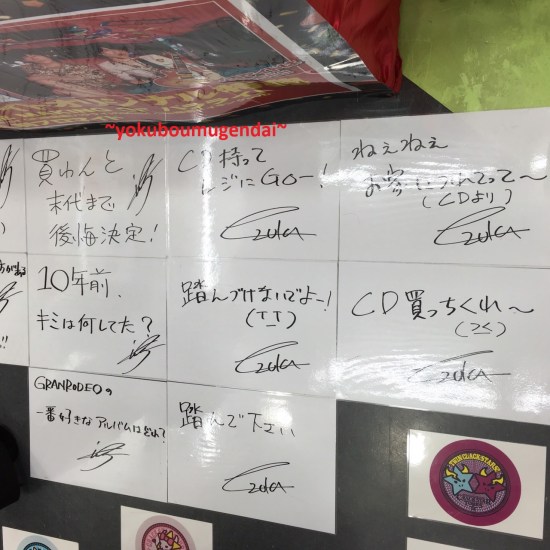 ~yokuboumugendai~
買わんと
末代まで
後悔決定!
CD持って
レジにGO-!
ねぇねぇ
(CDより)
10年前、
キミは何してた?
踏んづけないでよー!
(T_T)
CD買っちくれ〜
GRANRODEOの
一番好きなアルバムは
踏んで下さい